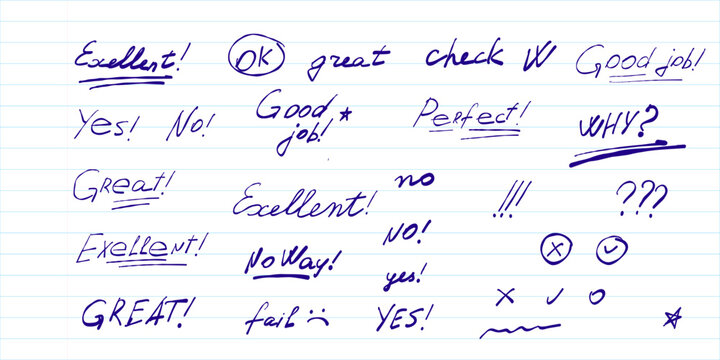 Exellent! OK great check W Good job!
Yes! No! Good job! Perfect! WHY?
Great! Exellent! no !!! ???
Exellent! No Way! NO!
yes!
GREAT! fail YES!